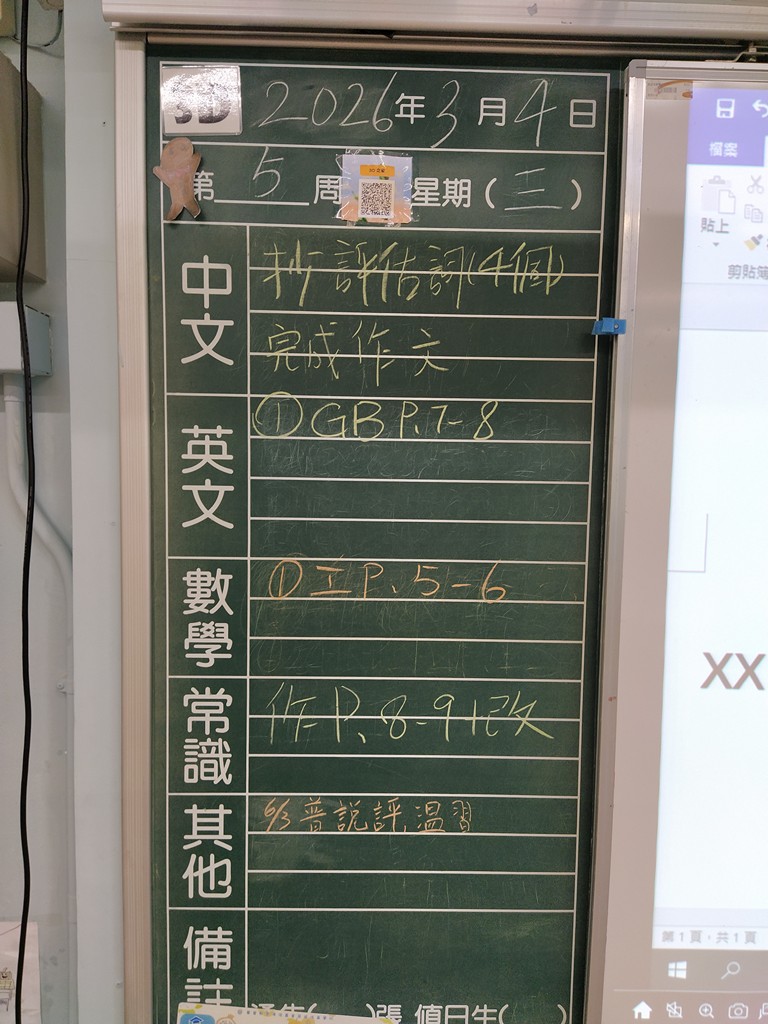 3D
2026年3月4日
第5周 星期(三)
中文
抄評估詞(4個)
完成作文
英文
①GB P.7-8
數學
①工P.5-6
常識
作P.8-9+改
其他
6/3普說評,溫習
備註
張 值日生(
檔案
貼上
剪貼簿
XX
第1頁,共1頁